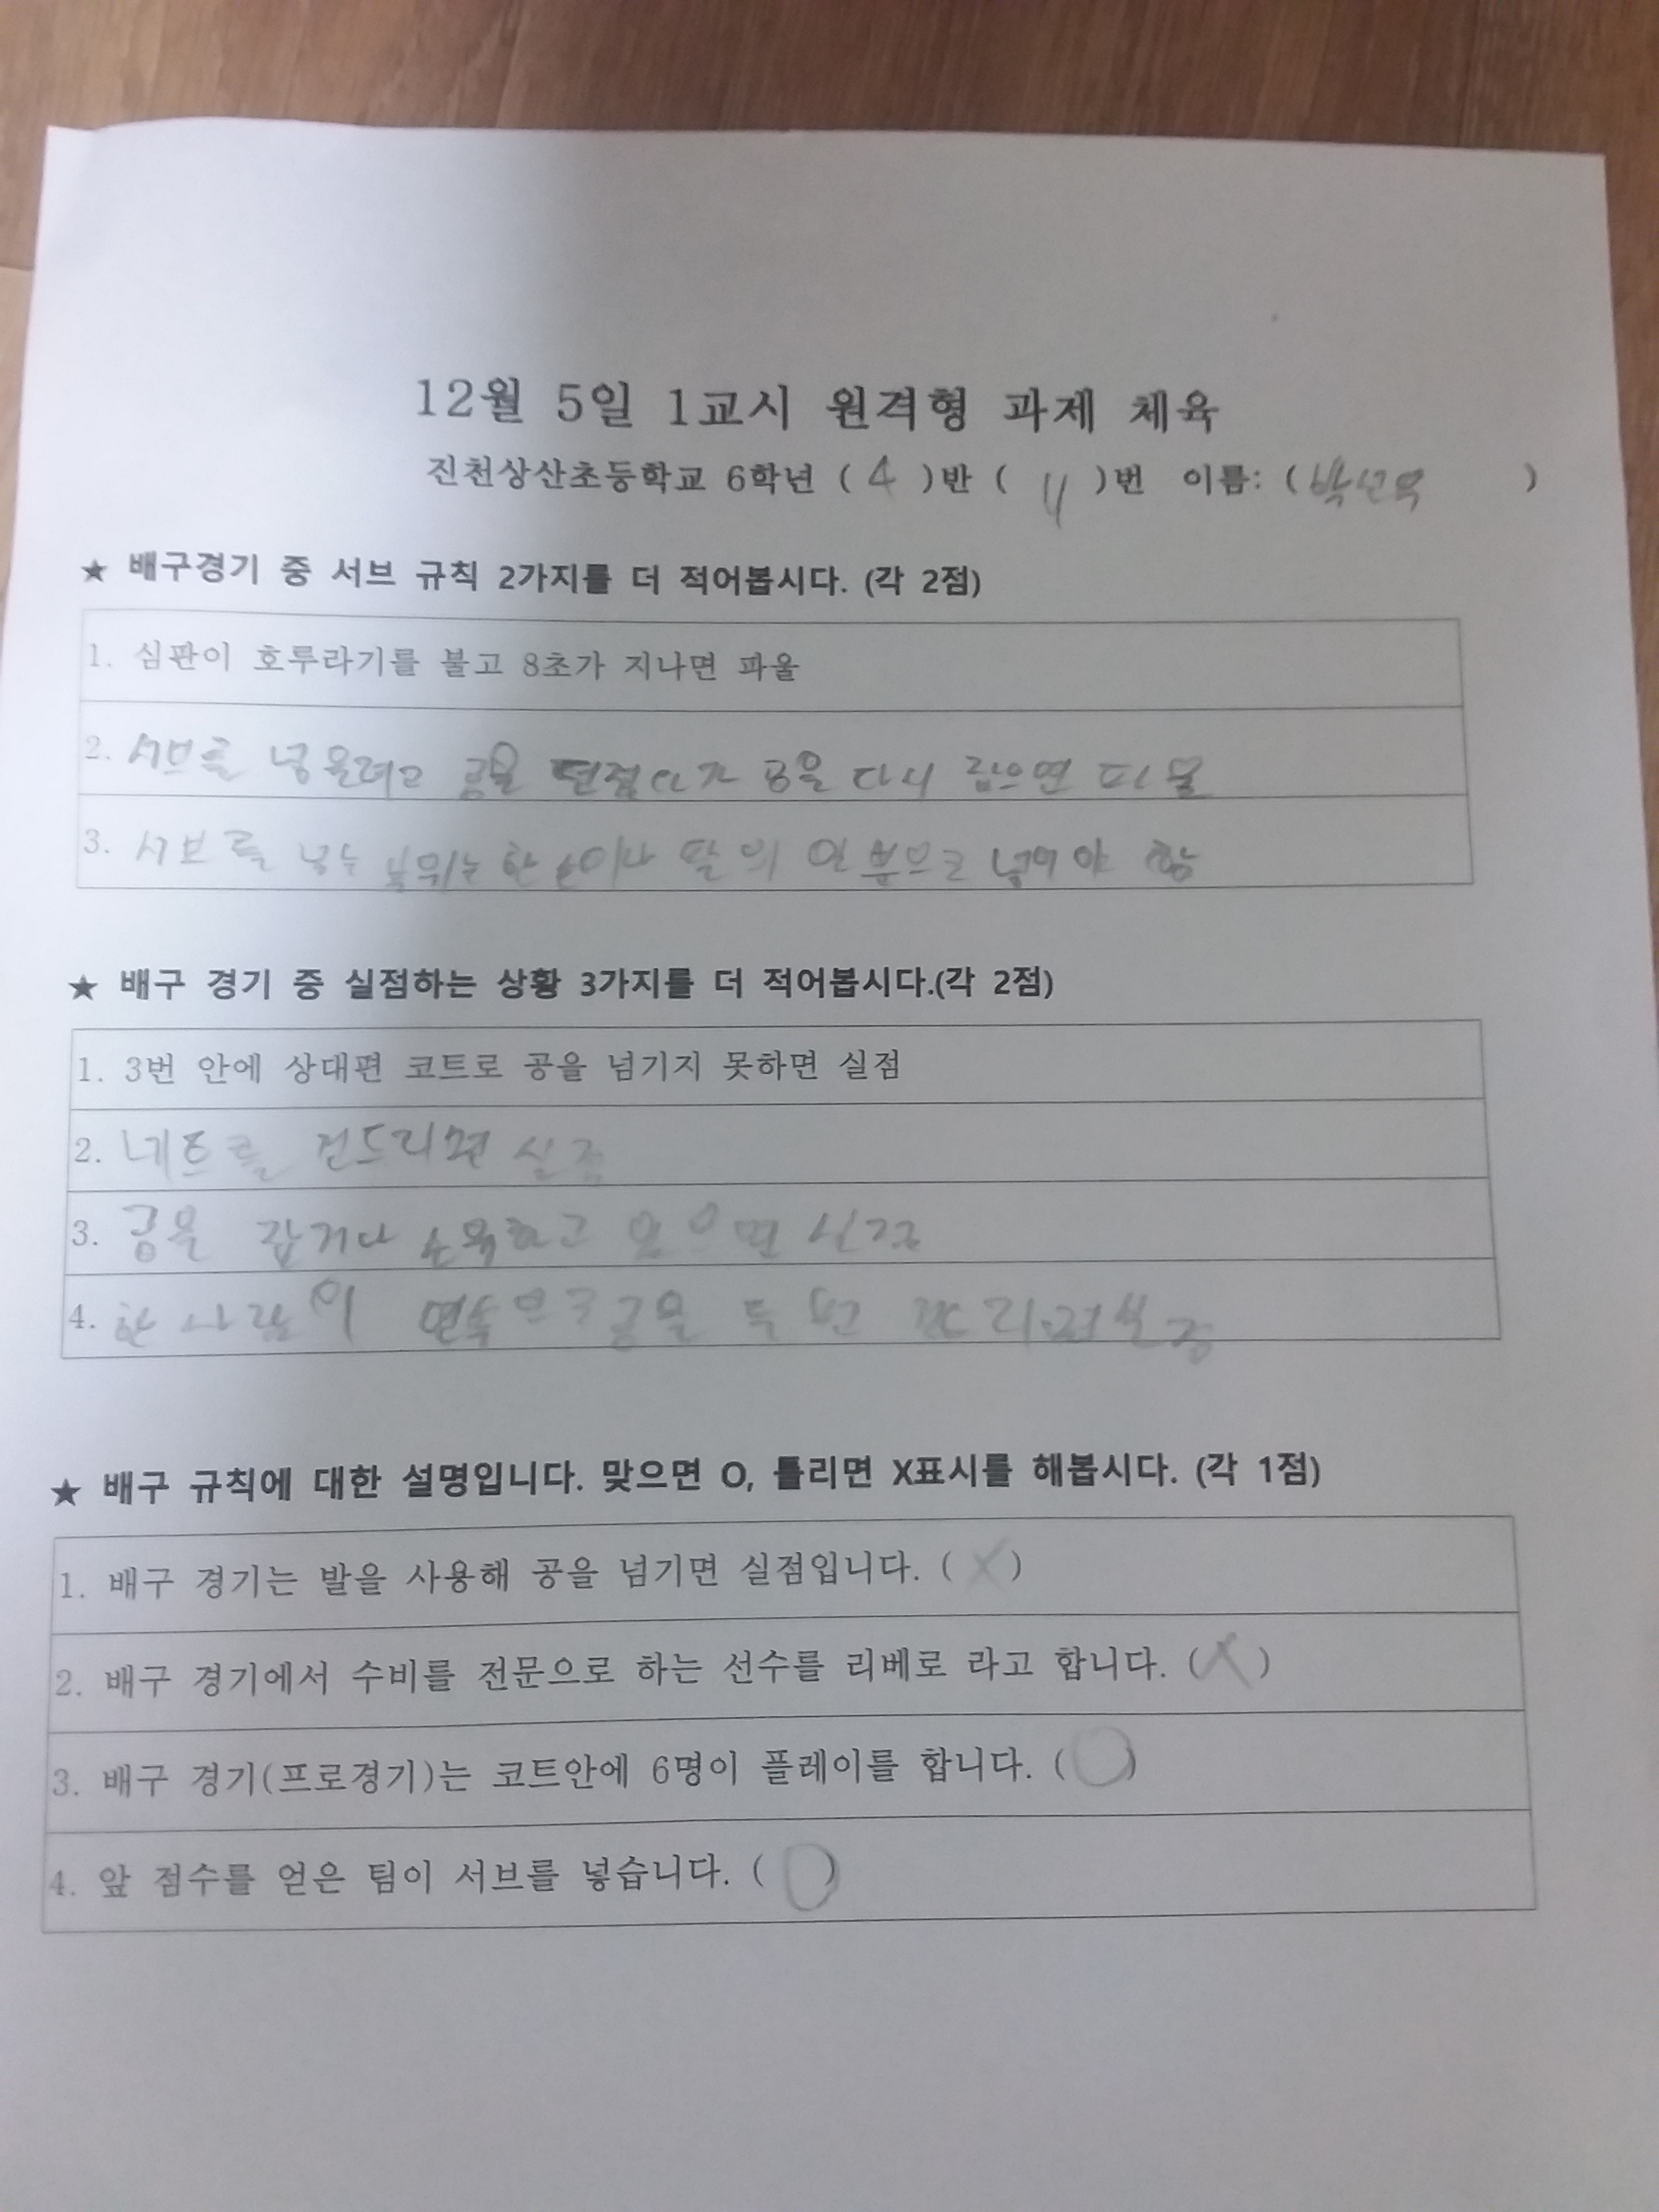 12월 5일 1교시 원격형 과제 체육
진천상산초등학교 6학년 ( 4 )반 ( 11 )번 이름: ( 박선우 )
★ 배구경기 중 서브 규칙 2가지를 더 적어봅시다. (각 2점)
1. 심판이 호루라기를 불고 8초가 지나면 파울
2. 서브를 넣을려고 공을 던졌다가 공을 다시 잡으면 파울
3. 서브를 넣는 부위는 한 손이나 팔의 일부분으로 넣어야 함
★ 배구 경기 중 실점하는 상황 3가지를 더 적어봅시다.(각 2점)
1. 3번 안에 상대편 코트로 공을 넘기지 못하면 실점
2. 네트를 건드리면 실점
3. 공을 잡거나 소유하고 있으면 실점
4. 한 사람이 연속으로 공을 두 번 실점
★ 배구 규칙에 대한 설명입니다. 맞으면 O, 틀리면 X표시를 해봅시다. (각 1점)
1. 배구 경기는 발을 사용해 공을 넘기면 실점입니다. ( X )
2. 배구 경기에서 수비를 전문으로 하는 선수를 리베로 라고 합니다. ( X )
3. 배구 경기(프로경기)는 코트안에 6명이 플레이를 합니다. ( O )
4. 앞 점수를 얻은 팀이 서브를 넣습니다. ( O )